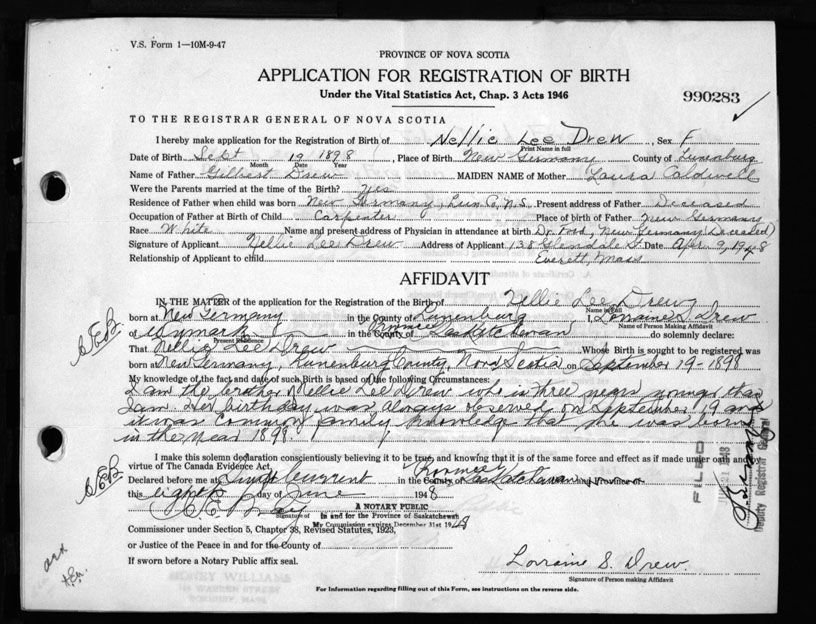 V.S. Form 1—10M-9-47
PROVINCE OF NOVA SCOTIA
APPLICATION FOR REGISTRATION OF BIRTH
Under the Vital Statistics Act, Chap. 3 Acts 1946
990283
TO THE REGISTRAR GENERAL OF NOVA SCOTIA
I hereby make application for the Registration of Birth of Nellie Lee Drew, Sex F
Print Name in full
Date of Birth Sept 19 1898, Place of Birth New Germany County of Lunenburg
Month Day Year
Name of Father Gilbert Drew MAIDEN NAME of Mother Laura Caldwell
Were the Parents married at the time of the Birth? Yes
Residence of Father when child was born New Germany, Lun Co, N.S. Present address of Father Deceased
Occupation of Father at Birth of Child Carpenter Place of birth of Father New Germany
Race White Name and present address of Physician in attendance at birth Dr. Ford, New Germany (Deceased)
Signature of Applicant Nellie Lee Drew Address of Applicant 138 Glendale St. Date Apr 9, 1948
Relationship of Applicant to child Everett, Mass
AFFIDAVIT
IN THE MATTER of the application for the Registration of the Birth of Nellie Lee Drew
Name in full
born at New Germany in the County of Lunenburg I, Lorraine S. Drew
Name of Person Making Affidavit
of Wymark in the County of Province Saskatchewan do solemnly declare:
Present Residence
That Nellie Lee Drew Whose Birth is sought to be registered was
born at New Germany, Lunenburg County, Nova Scotia on September 19 - 1898
My knowledge of the fact and date of such Birth is based on the following Circumstances:
I am the brother of Nellie Lee Drew who is three years younger than
I am. Her birthday was always observed on September 19 and
it was common family knowledge that she was born
in the year 1898.
I make this solemn declaration conscientiously believing it to be true, and knowing that it is of the same force and effect as if made under oath and by
virtue of The Canada Evidence Act.
Declared before me at Swift Current in the County of Province Saskatchewan and Province of
this eighth day of June 1948
A NOTARY PUBLIC
Signature of in and for the Province of Saskatchewan
My Commission expires December 31st 1948
Commissioner under Section 5, Chapter 38, Revised Statutes, 1923,
or Justice of the Peace in and for the County of
If sworn before a Notary Public affix seal.
Lorraine S. Drew
Signature of Person making Affidavit
For Information regarding filling out of this Form, see instructions on the reverse side.
FILED
Deputy Registrar General
SIDNEY WILLIAMS